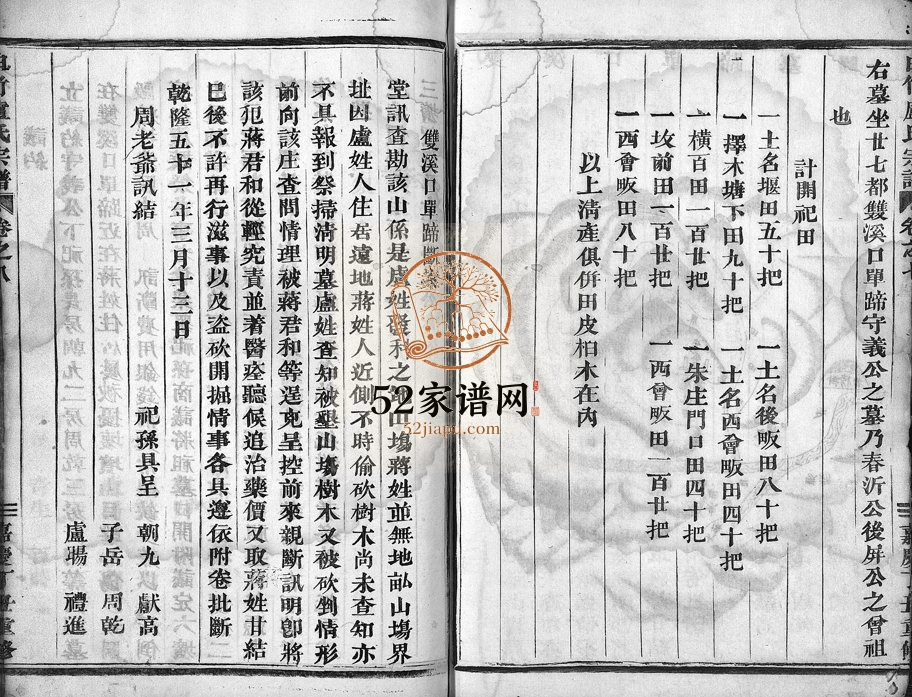 右墓坐廿七都雙溪口單蹄守義公之墓乃春沂公後屏公之曾祖
也
計開祀田
一土名堰田五十把 一土名後畈田八十把
一擇木塘下田九十把 一土名西會畈田四十把
一橫百田一百廿把 一朱庄門口田四十把
一坟前田一百廿把 一西會畈田一百廿把
一西會畈田八十把
以上清產俱併田皮柏木在內
盧氏宗譜 卷之
嘉慶丁丑重修
雙溪口單蹄
堂訊查勘該山係是盧姓發科之山塲蔣姓並無地畝山塲界
址因盧姓人住居遠地蔣姓人近側不時偷砍樹木尚未查知亦
不具報到祭掃清明墓盧姓查知被塟山塲樹木又被砍剉情形
前向該庄查問情理被蔣君和等逞兇呈控前來親斷訊明卽將
該犯蔣君和從輕究責並着醫痊聽候追治藥價又取蔣姓甘結
巳後不許再行滋事以及盜砍開掘情事各具遵依附卷批斷
乾隆五十一年三月十三日
周老爺訊結 祀孫具呈 朝九 獻高
子岳 周乾
盧賜 禮進
盧氏宗譜 卷之八
嘉慶丁丑重修
52家谱网
52jiapu.com